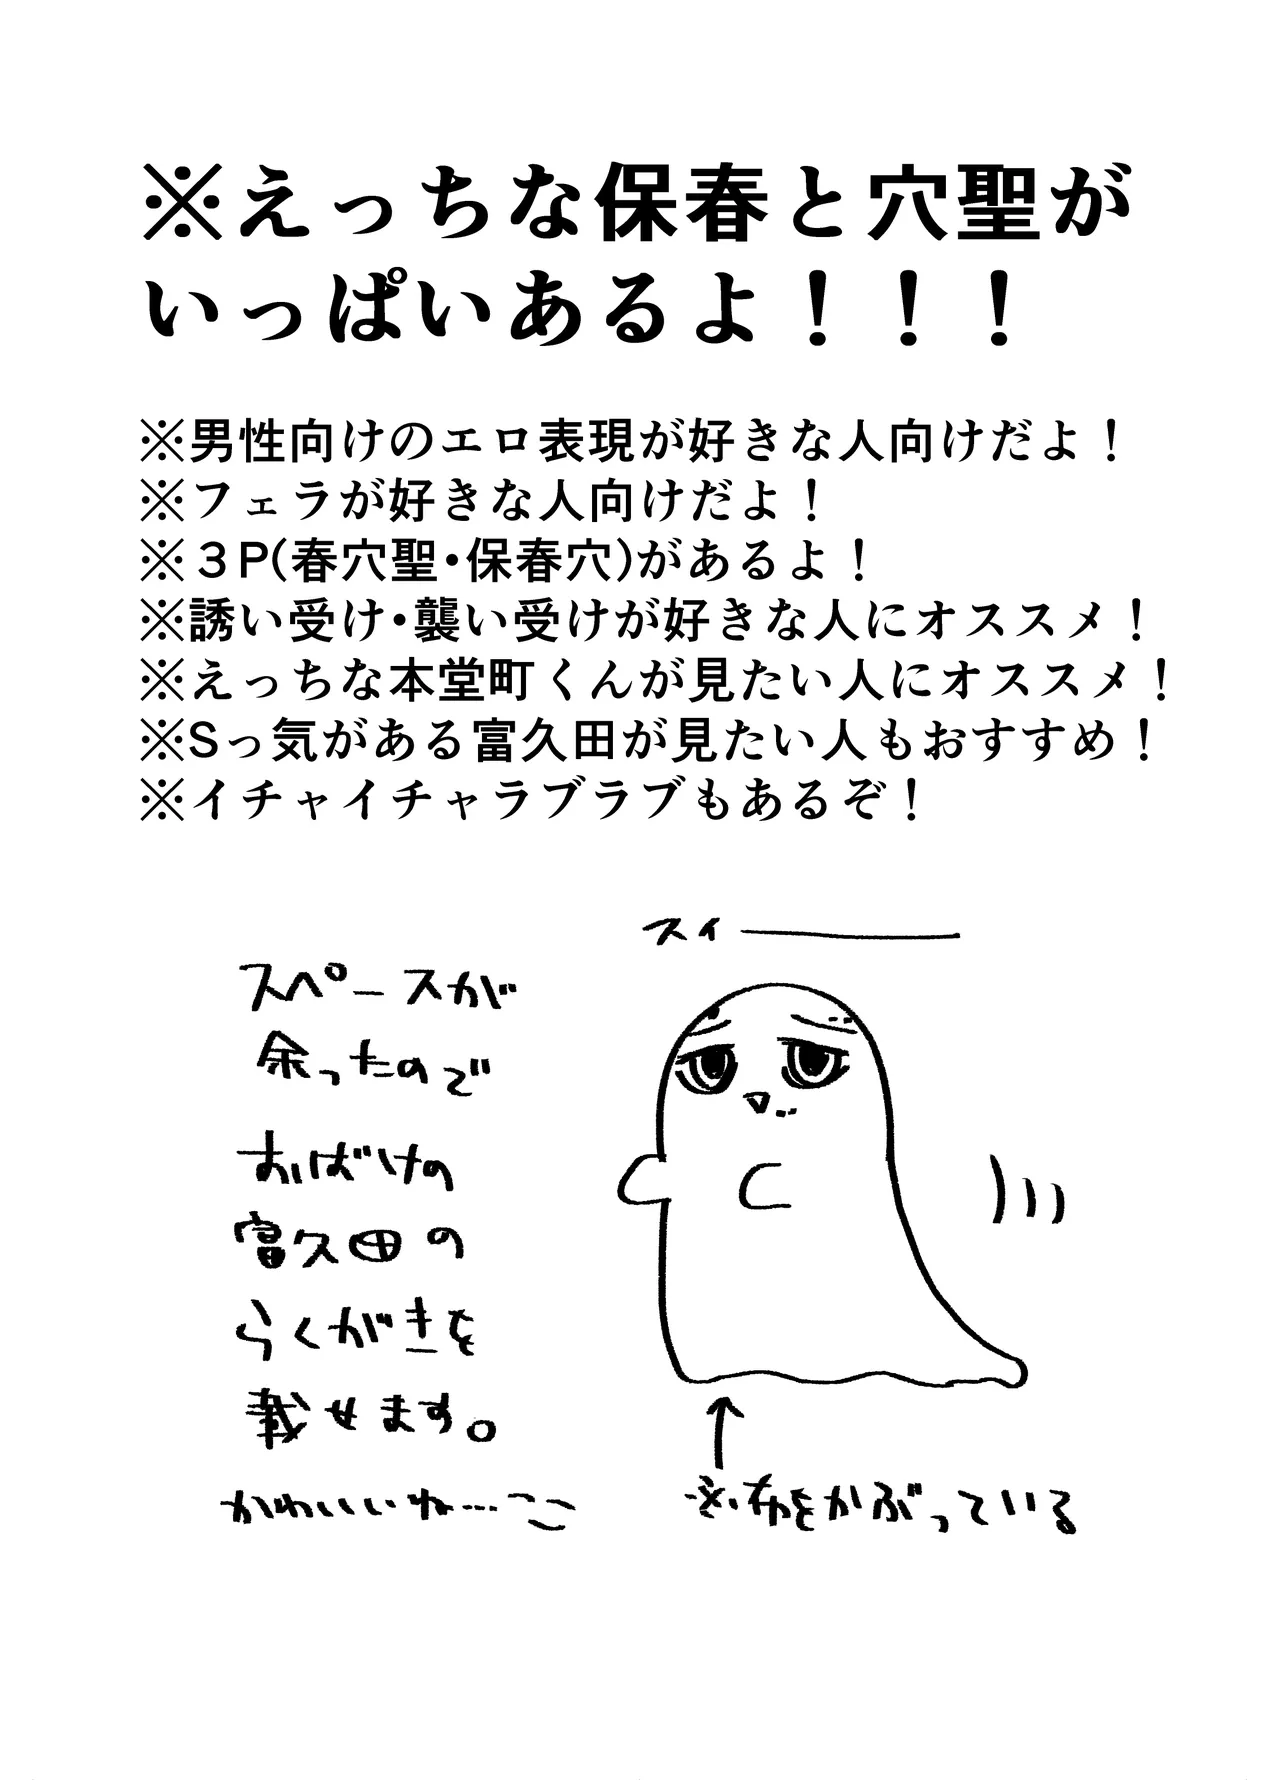 ※えっちな保春と穴聖が
いっぱいあるよ！！！
※男性向けのエロ表現が好きな人向けだよ！
※フェラが好きな人向けだよ！
※３P(春穴聖・保春穴)があるよ！
※誘い受け・襲い受けが好きな人にオススメ！
※えっちな本堂町くんが見たい人にオススメ！
※Sっ気がある富久田が見たい人もおすすめ！
※イチャイチャラブラブもあるぞ！
スペースが
余ったので
おばけの
富久田の
らくがきを
載せます。
かわいいね…
スィ――――
※布をかぶっている